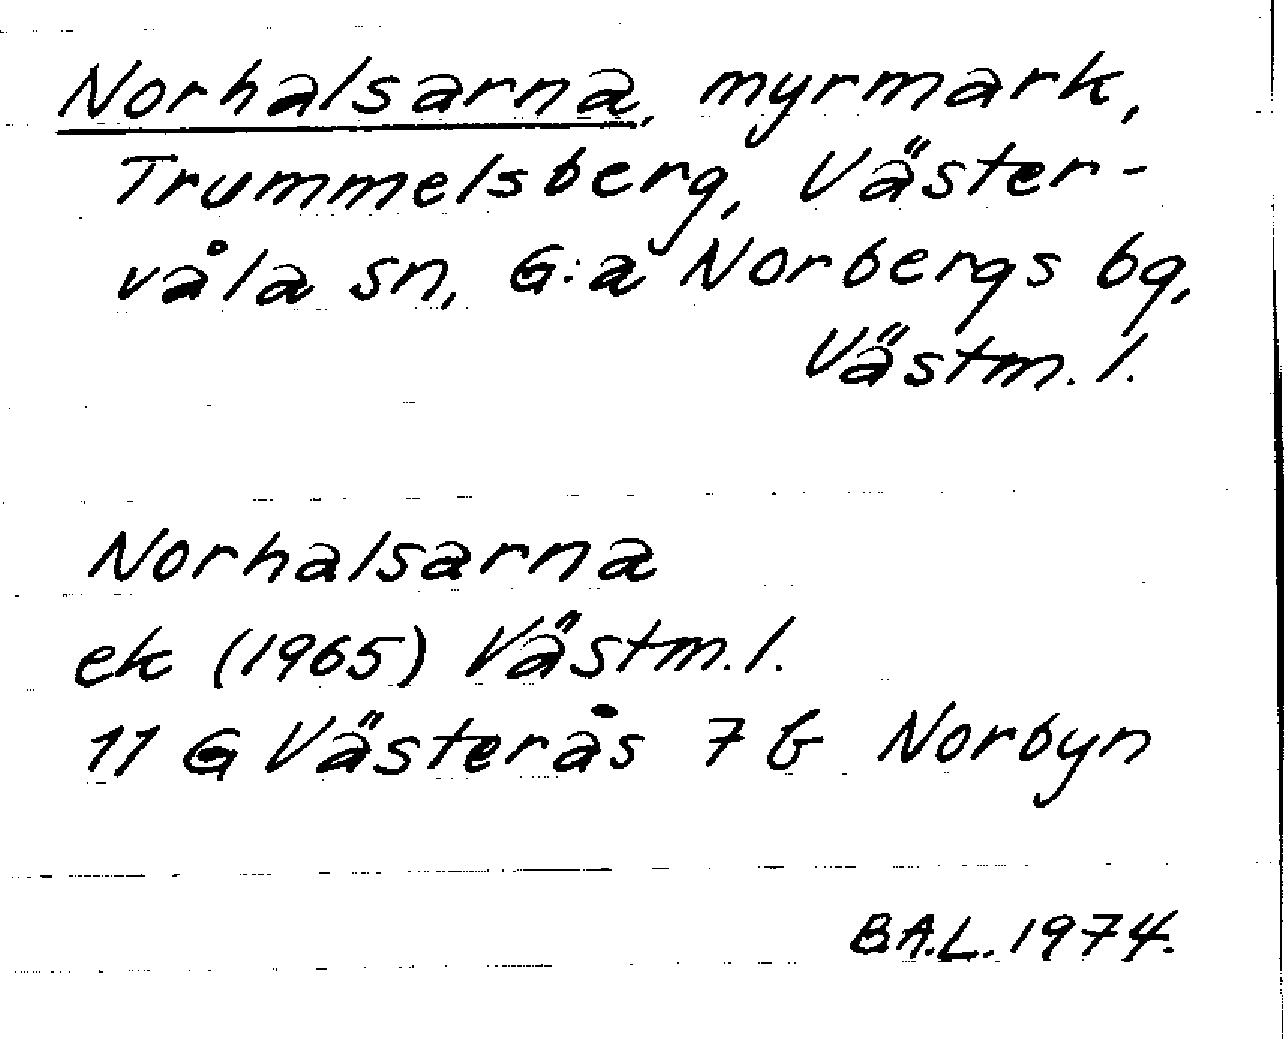 Norhalsarna, myrmark,
Trummelsberg, Väster-
våla sn, G:a Norbergs bg,
Västm. l.
Norhalsarna
ek (1965) Västm. l.
11 G Västerås 7 b Norbyn
B.A.L. 1974.